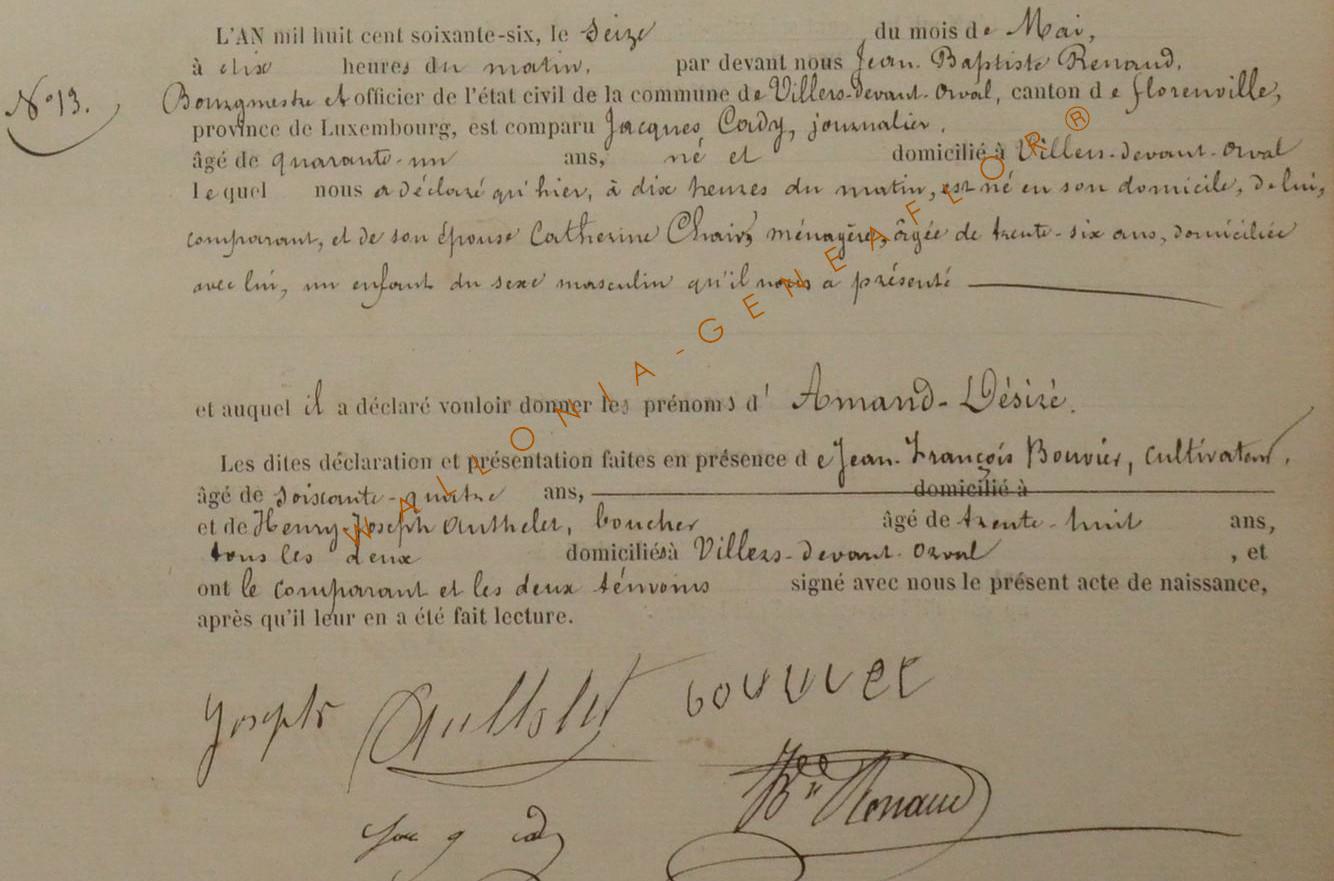 L'AN mil huit cent soixante-six, le Seize du mois de Mai,
à dix heures du matin, par devant nous Jean-Baptiste Renaud,
N° 13.
Bourgmestre et officier de l'état civil de la commune de Villers-devant-Orval, canton de florenville,
province de Luxembourg, est comparu Jacques Cady, journalier,
âgé de quarante-un ans, né et domicilié à Villers-devant-Orval
lequel nous a déclaré qu'hier, à dix heures du matin, est né en son domicile, de lui,
comparant, et de son épouse Catherine ménagère, âgée de trente-six ans, domiciliée
avec lui, un enfant du sexe masculin qu'il nous a présenté
et auquel il a déclaré vouloir donner les prénoms d'Amand-Désiré.
Les dites déclaration et présentation faites en présence de Jean-François Bouvier, cultivateur,
âgé de soixante-quatre ans, domicilié à
et de Henry-Joseph Authelet, boucher âgé de trente-huit ans,
tous les deux domiciliés à Villers-devant-Orval , et
ont le comparant et les deux témoins signé avec nous le présent acte de naissance,
après qu'il leur en a été fait lecture.
Joseph Authelet bouvier
Bte Renaud
WALLONIA-GENEAFLOR®